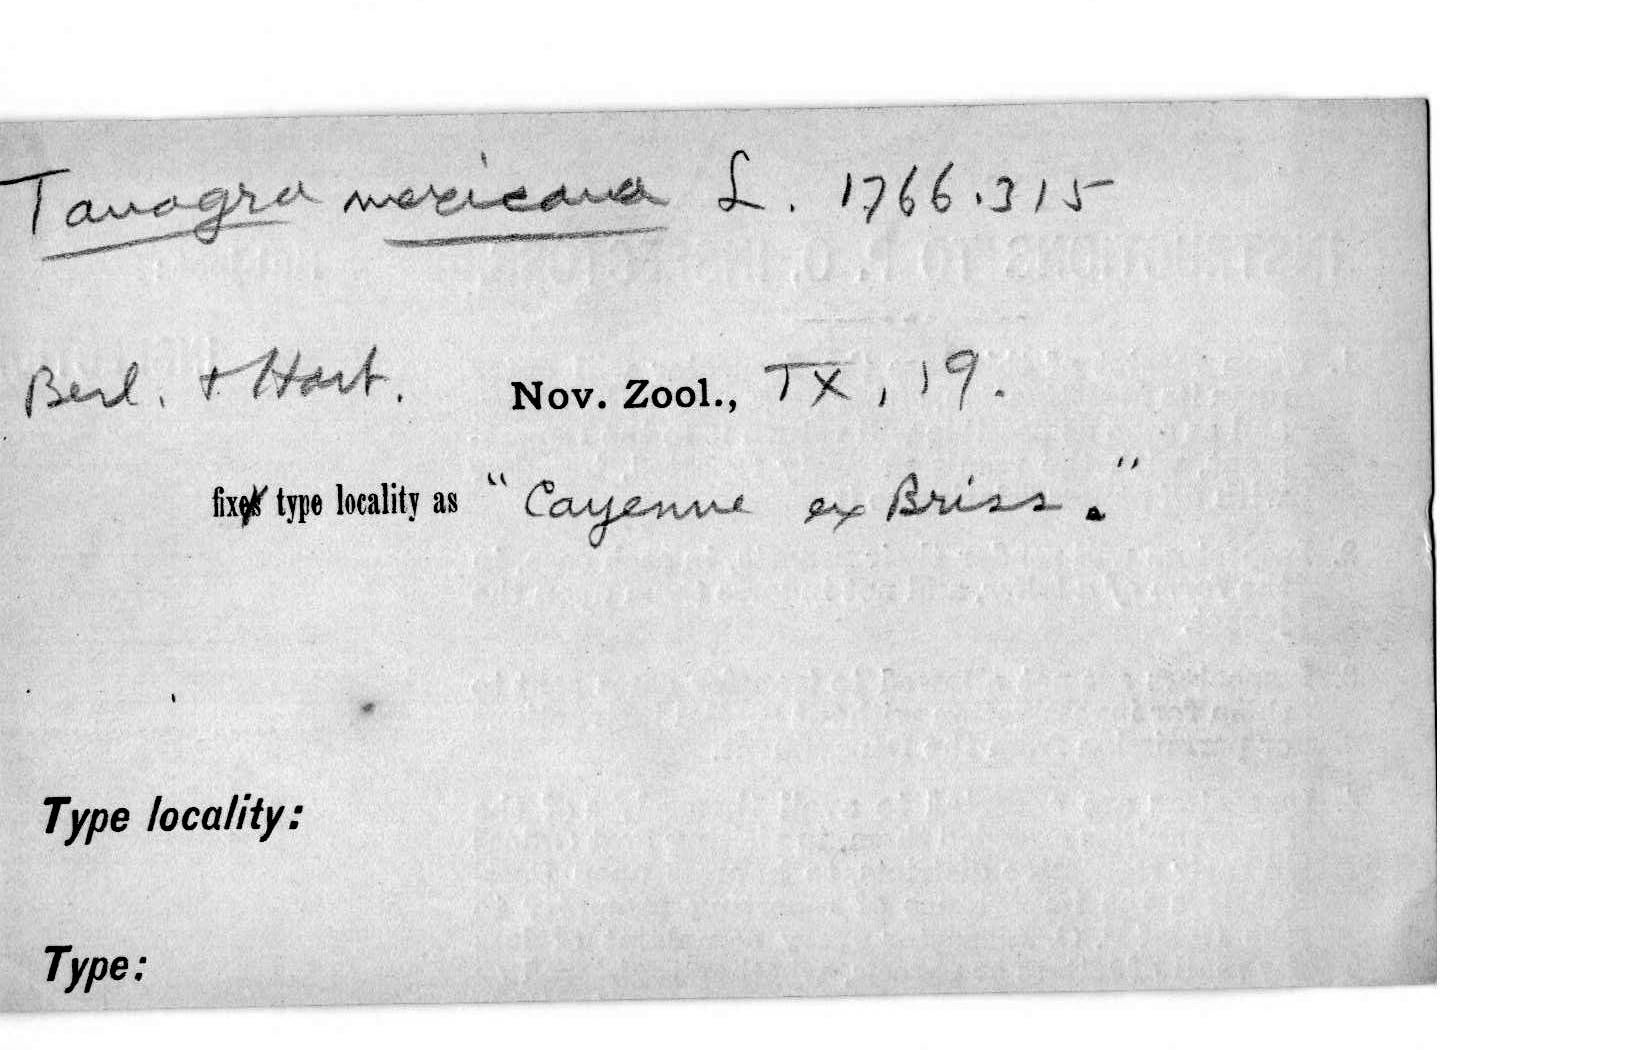 Tanagra mexicana L. 1766.315
Berl. & Hart. Nov. Zool., IX, 19.
fix type locality as "Cayenne ex Briss."
Type locality:
Type: